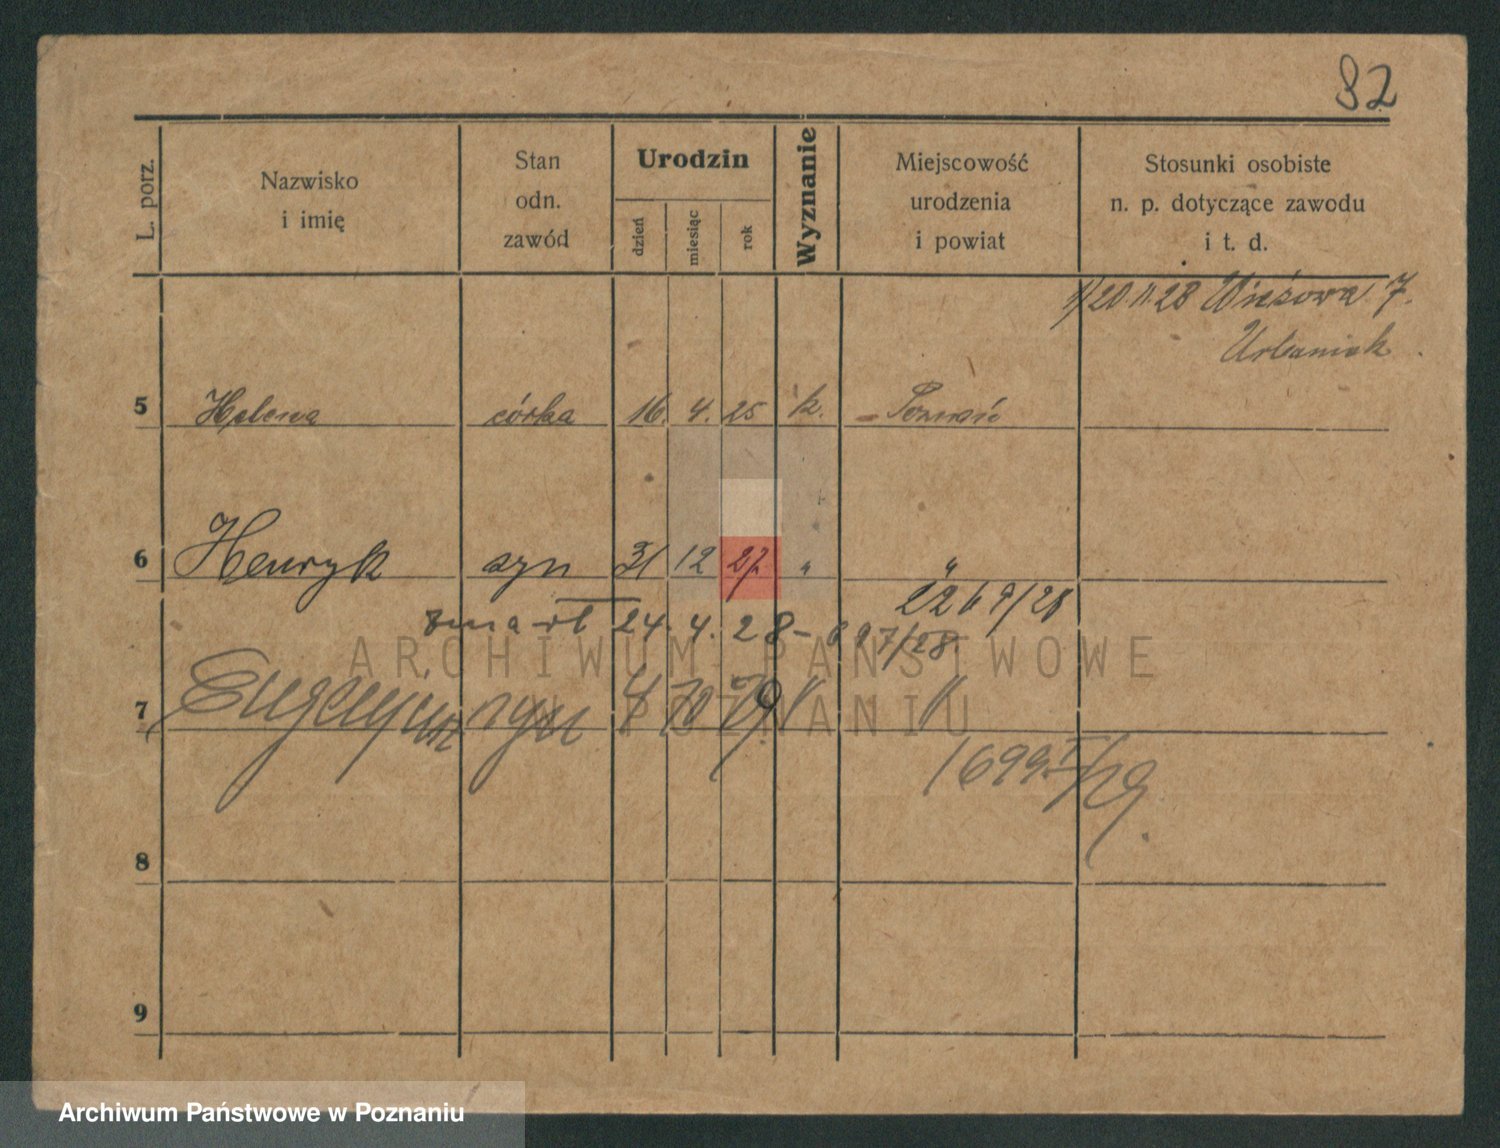 82
L. porz.
Nazwisko
i imię
Stan
odn.
zawód
Urodzin
dzień
miesiąc
rok
Wyznanie
Miejscowość
urodzenia
i powiat
Stosunki osobiste
n. p. dotyczące zawodu
i t. d.
1/20.11.28 Wieżowa 7.
Urbaniak
5 Helena córka 16. 4. 25 k. Poznań
6 Henryk syn 31 12 27. " "
2269/28
zmarł 24. 4. 28 - 697/28.
7 syn 4 10 29 " "
/29.
8
9
ARCHIWUM PAŃSTWOWE
W POZNANIU
Archiwum Państwowe w Poznaniu